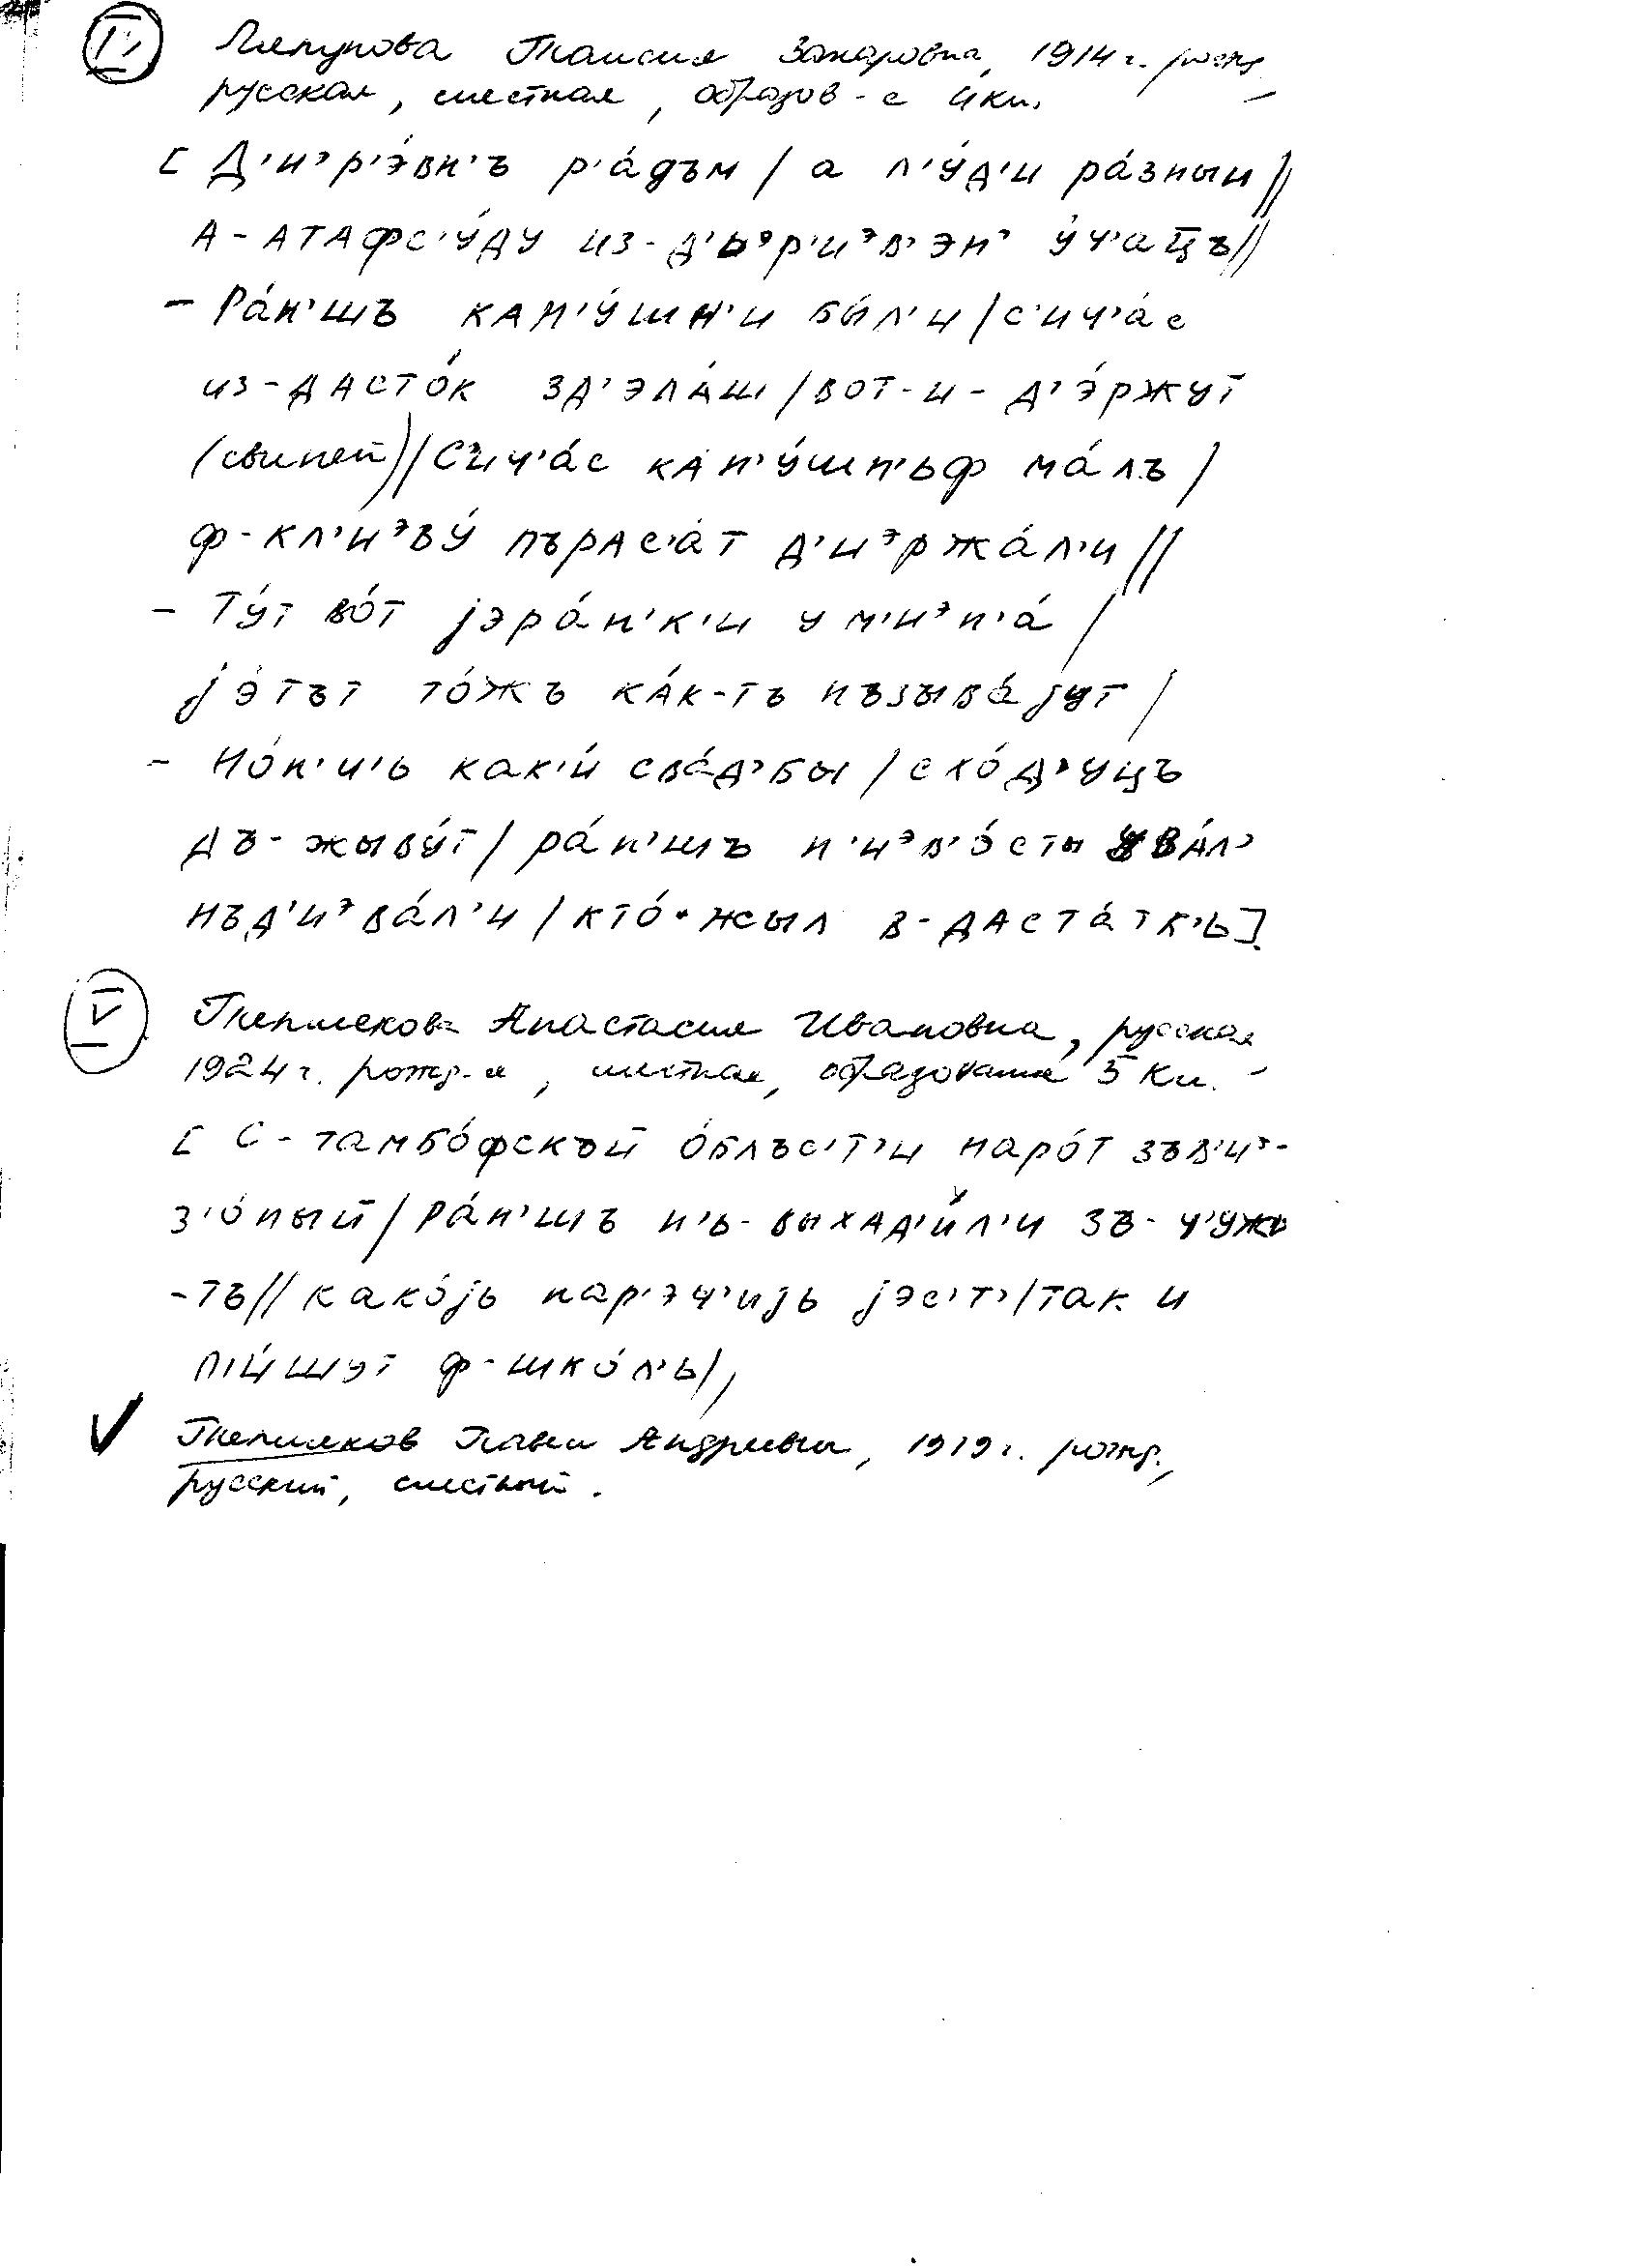 IV Ляпунова Таисия Захаровна, 1914 г. рожд.,
русская, местная, образов-е 4 кл.
[ Д'иэр'э́вн'ъ р'а́дъм / а л'у́д'и ра́зныи //
А-АТАФС'У́ДУ из-д'ьэр'иэв'эн' у́ч'ац̄ъ //
– Ра́н'шъ кАн'у́шн'и бы́л'и / с'ич'а́с
из-дАсто́к зд'эла́ш / вот-и-д'э́ржут
(свиней) // С'ич'а́с кАн'у́шн'ьф ма́лъ /
ф-кл'иэву́ пърАс'а́т д'иэржа́л'и //
– Ту́т во́т jэра́н'к'и у м'иэн'а́ /
jэ́тът то́жъ ка́к-тъ нъзыва́jут /
– Но́н'ч'ь как'и́ сва́д'бы / схо́д'уцъ
дъ-жыву́т / ра́н'шъ н'иэв'э́сты вАл'
нъд'иэва́л'и / кто́-жыл в-дАста́тк'ь ].
V Тепляков Анастасия Ивановна, русская
1924 г. рожд-я, местная, образование 5 кл.
[ С-тамбо́фскъй о́блъс'т'и наро́т зъв'иэ-
з'о́ный / Ра́н'шъ н'ь-выхАд'и́л'и зъ-ч'ужо
-тъ // како́jь нар'эч'иjь jэс'т' / так и
п'и́шут ф-шко́л'ь //
V Тепляков Павел Андреевич, 1919 г. рожд.,
русский, местный.